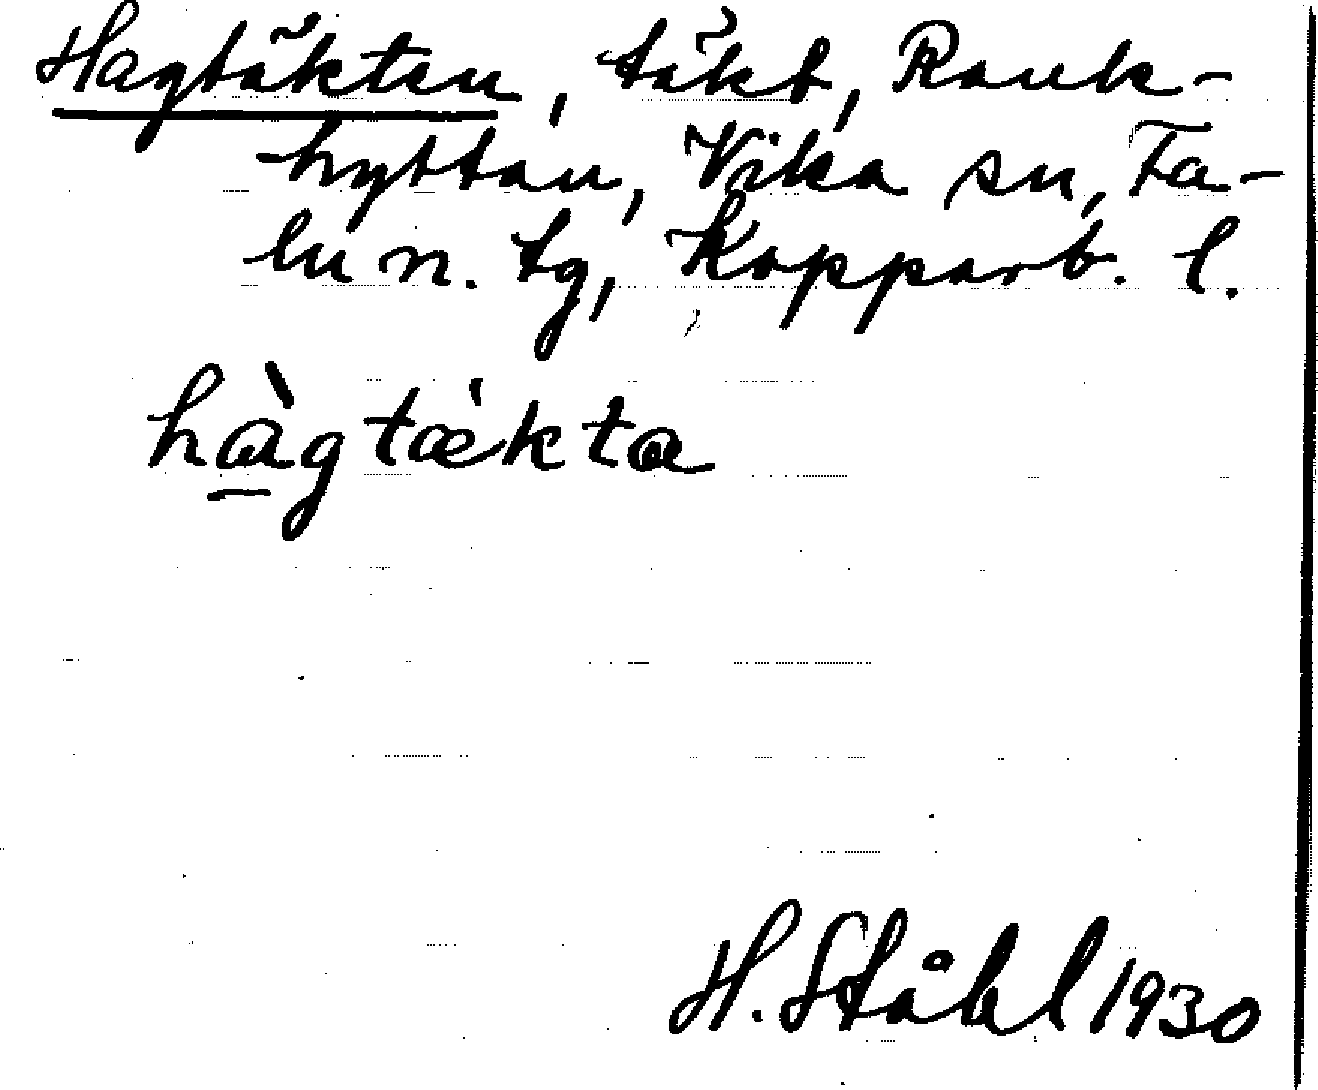 Hagtäkten, täkt, Rank-
hyttan, Vika sn, Fa-
lu n. tg, Kopparb. l.
hàgtæ̀kta
H. Ståhl 1930